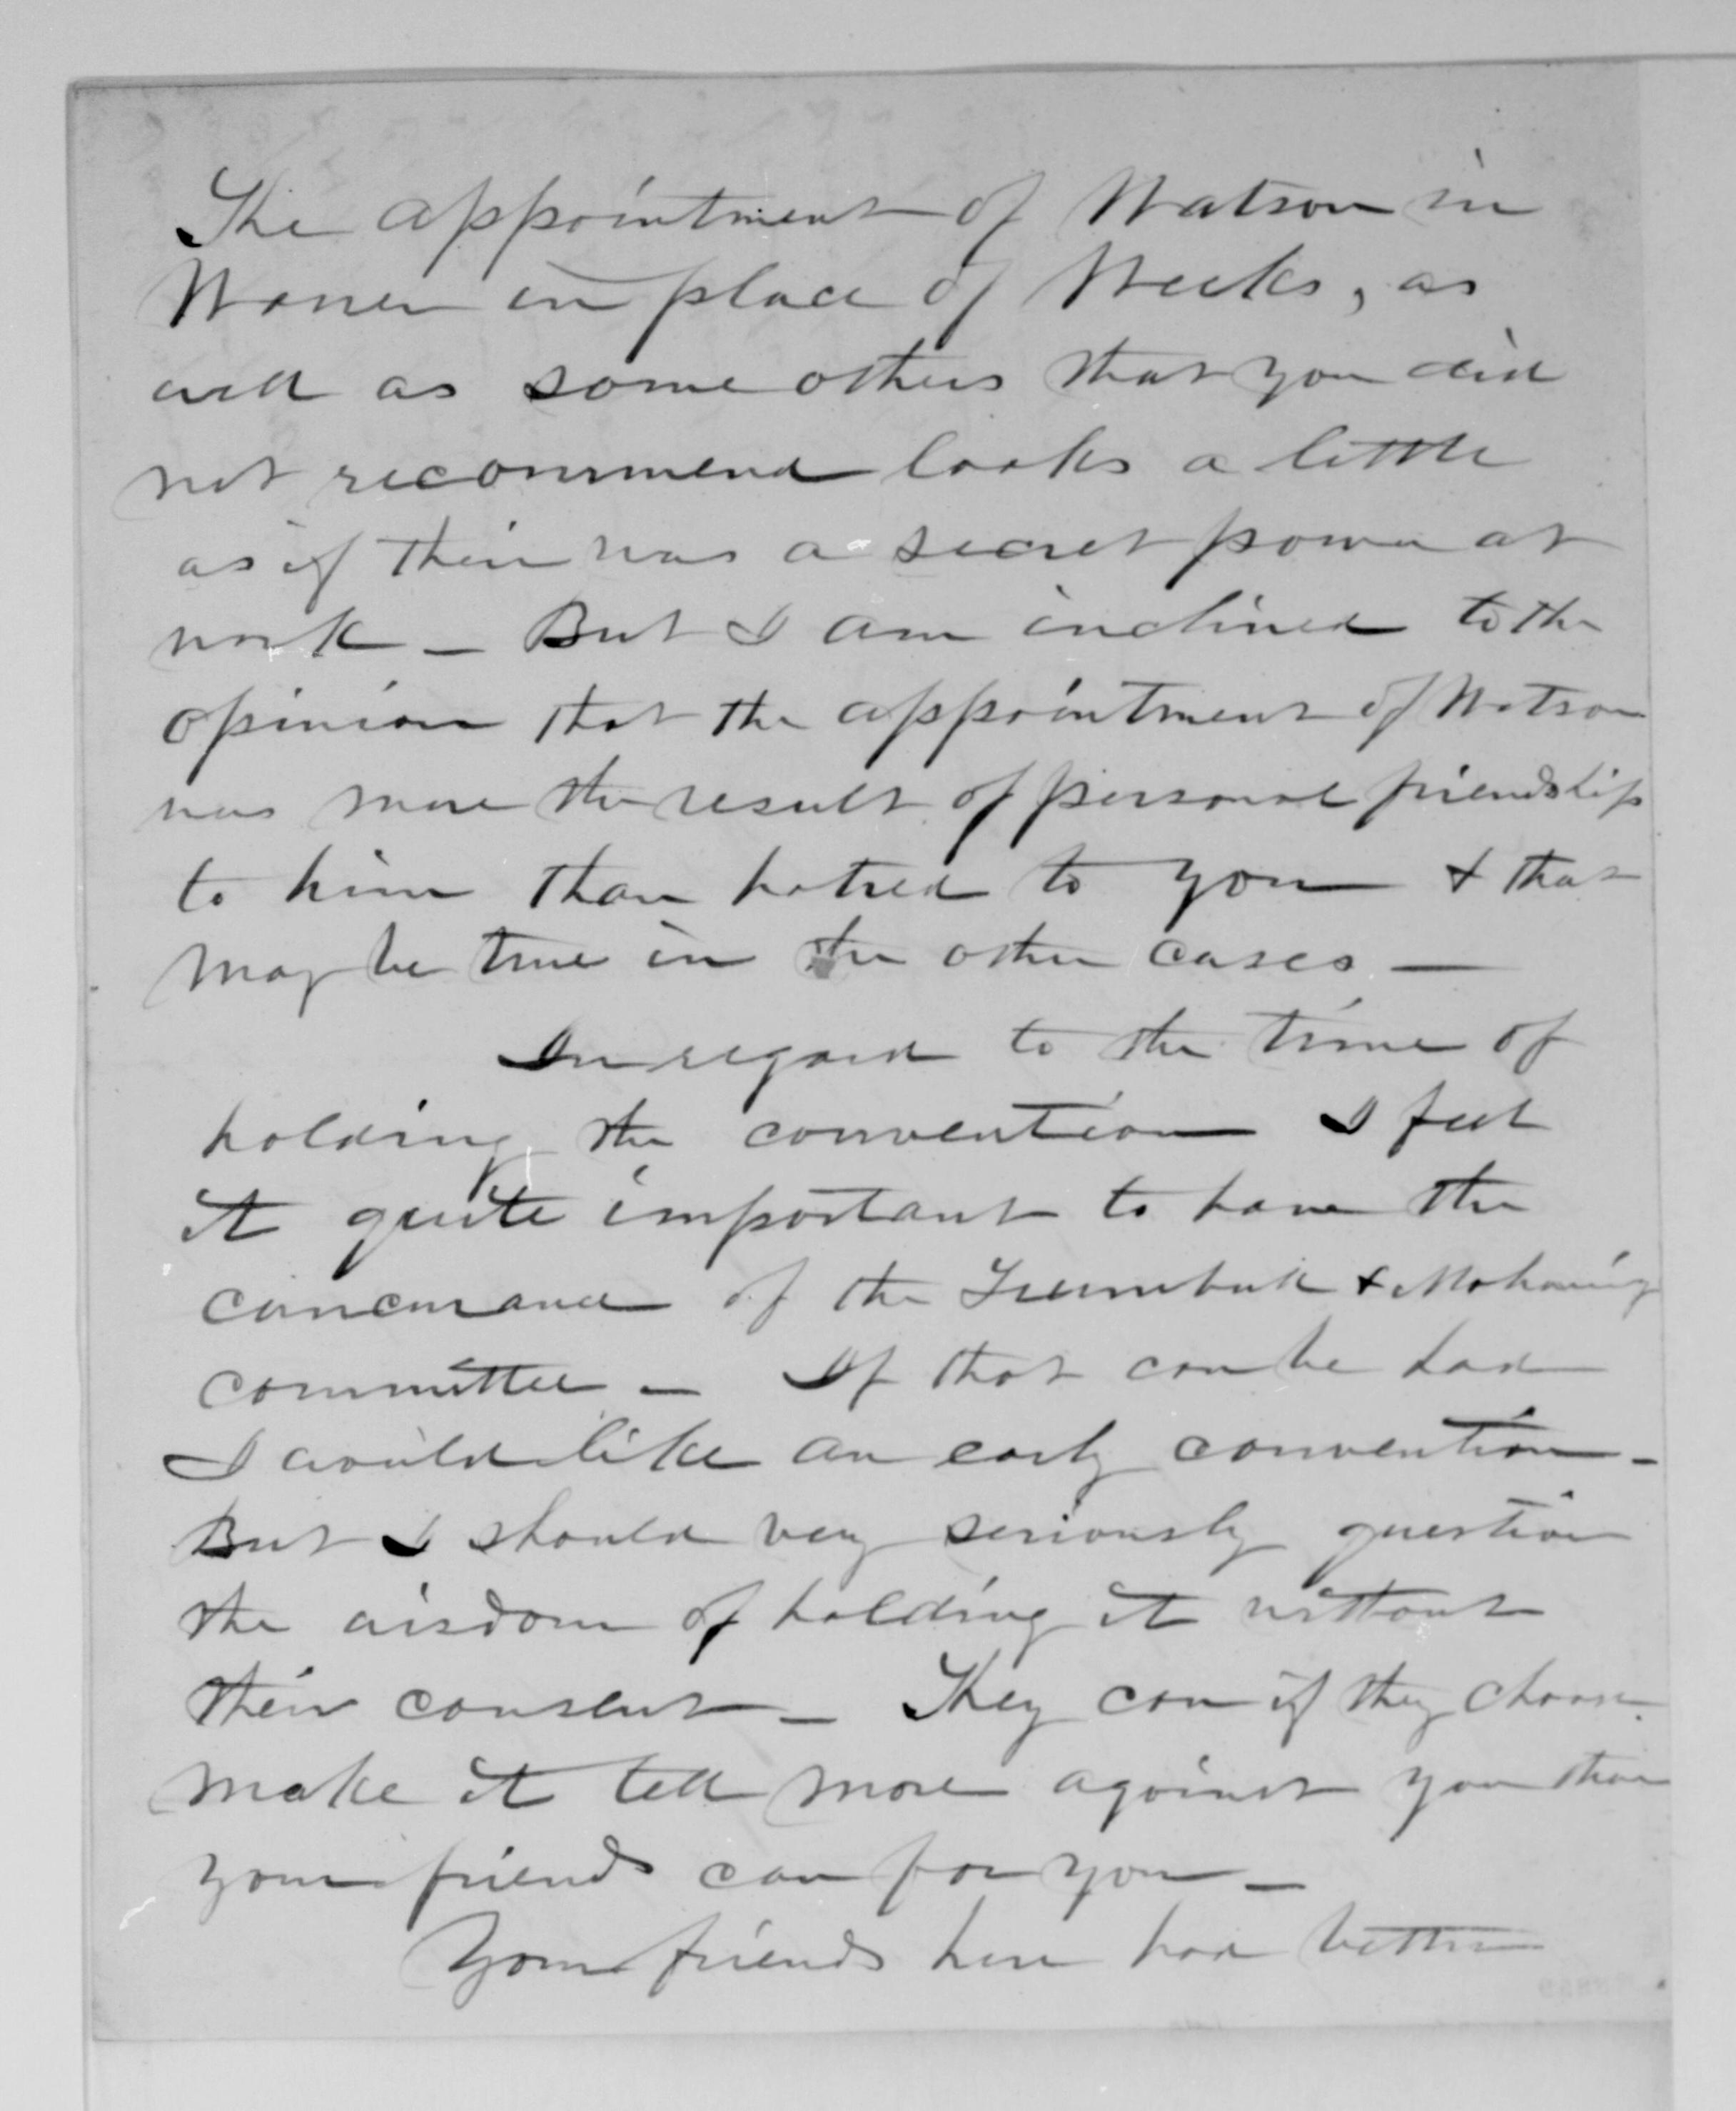 The appointment of Watson in
Warren in place of Weeks, as
well as some others that you did
not recommend looks a little
as if there was a secret power at
work – But I am inclined to the
opinion that the appointment of Watson
was more the result of personal friendship
to him than hatred to you & that
may be true in the other cases –
In regard to the time of
holding the convention I feel
it quite important to have the
concurrance of the Trumbull & Mahoning
committee – If that can be had
I would like an early convention –
But I should very seriously question
the wisdom of holding it without
their consent – They can if they choose
make it tell more against you than
your friends can for you –
Your friends here had better